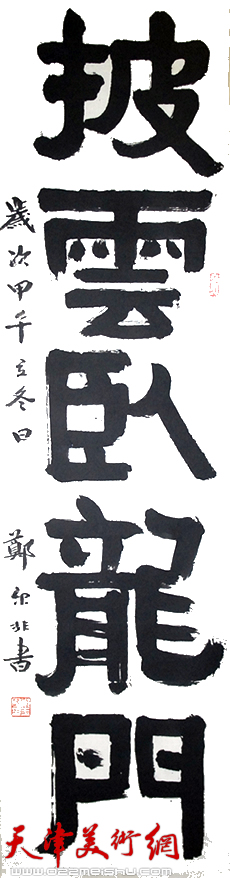 披雲臥龍門
歲次甲午立冬日 鄭爾非書
天津美術網
www.022meishu.com